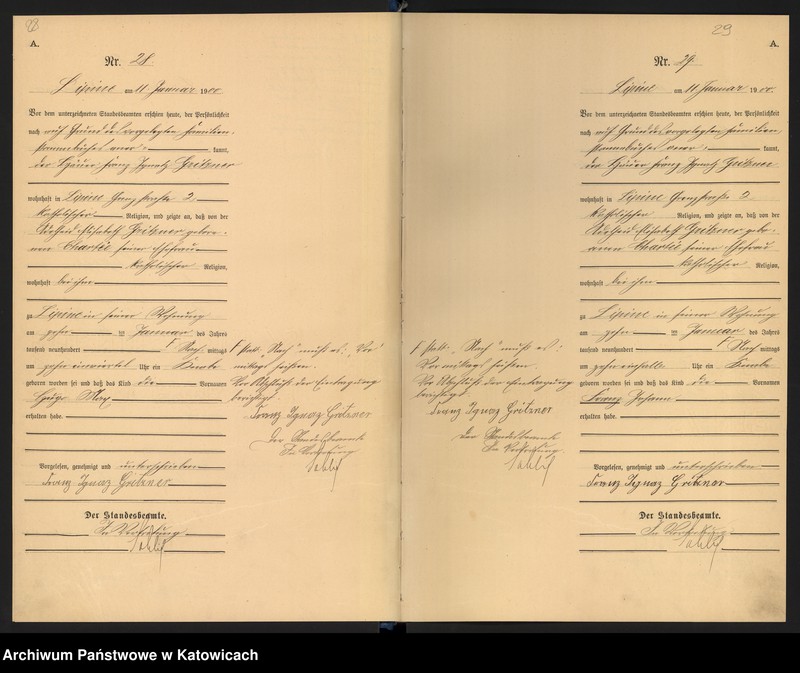 28
A.
Nr. 28
Lipine am 11 Januar 1900
Vor dem unterzeichneten Standesbeamten erschien heute, der Persönlichkeit
nach auf Grund des vorgelegten Familien-
stammbuches aner- kannt,
der Häuer Franz Ignatz Gritzner
wohnhaft in Lipine Grenzstraße 2
katholischer Religion, und zeigte an, daß von der
Elisabeth Gritzner gebore-
nen seiner Ehefrau
katholischer Religion,
wohnhaft bei ihm
zu Lipine in seiner Wohnung
am zehn ten Januar des Jahres
tausend neunhundert F Nach mittags
um zehn einviertel Uhr ein Knabe
geboren worden sei und daß das Kind die Vornamen
Hugo Max
erhalten habe.
F statt: "Nach" muß es: "Vor"
mittags heißen.
Vor Abschluß der Eintragung
berichtigt.
Franz Ignaz Gritzner
Der Standesbeamte
In Vertretung
Vorgelesen, genehmigt und unterschrieben
Franz Ignaz Gritzner
Der Standesbeamte.
In Vertretung
29
A.
Nr. 29
Lipine am 11 Januar 1900
Vor dem unterzeichneten Standesbeamten erschien heute, der Persönlichkeit
nach auf Grund des vorgelegten Familien
stammbuches aner- kannt,
der Häuer Franz Ignatz Gritzner
wohnhaft in Lipine Grenzstraße 2
katholischer Religion, und zeigte an, daß von der
Elisabeth Gritzner gebo-
renen seiner Ehefrau
katholischer Religion,
wohnhaft bei ihm
zu Lipine in seiner Wohnung
am zehn ten Januar des Jahres
tausend neunhundert F Nach mittags
um zehn einhalb Uhr ein Knabe
geboren worden sei und daß das Kind die Vornamen
Franz Johann
erhalten habe.
F statt: "Nach" muß es:
Vor mittags heißen
Vor Abschluß der Eintragung
berichtigt
Franz Ignaz Gritzner
Der Standesbeamte
In Vertretung
Vorgelesen, genehmigt und unterschrieben
Franz Ignaz Gritzner
Der Standesbeamte.
In Vertretung
Archiwum Państwowe w Katowicach